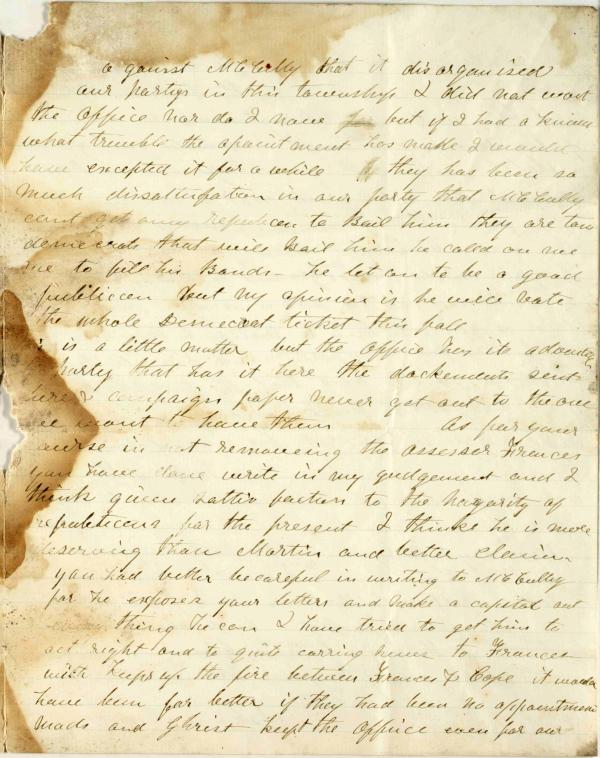 against McCully that it disorganised
our partys in this township I did not want
the office nor do I now but if I had a known
what trouble the apointment has make I would
have excepted it for a while they has been so
much dissatisfaction in our party that McCully
cant get any republican to Bail him they are two
democrats that will Bail him he caled on me
me to fill his Bonds - he let on to be a good
publiccan But my opinion is he will vote
the whole Democrat ticket this fall
is a little matter but the office has its
party that has it here the dockements sent
here & campaign paper never get out to the one
we want to have them As for your
course in not removeing the assessor Frances
you have done write in my gudgement and I
think given sattis faction to the magarity of
republicans for the present I thinke he is more
deserving than Martin and better claim.
you had better be careful in writing to McCully
for he exposes your letters and make a capital out
thing he can I have tried to get him to
act right and to quite carring news to Frances
wich keeps up the fire between Frances & Cope it would
have been far better if they had been no appointment
made and Ghrist kept the office even for our